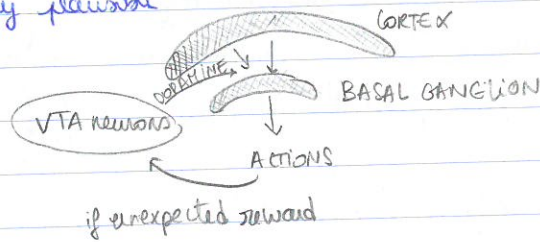 y plausible
CORTEX
DOPAMINE
BASAL GANGLION
VTA neurons
ACTIONS
if unexpected reward